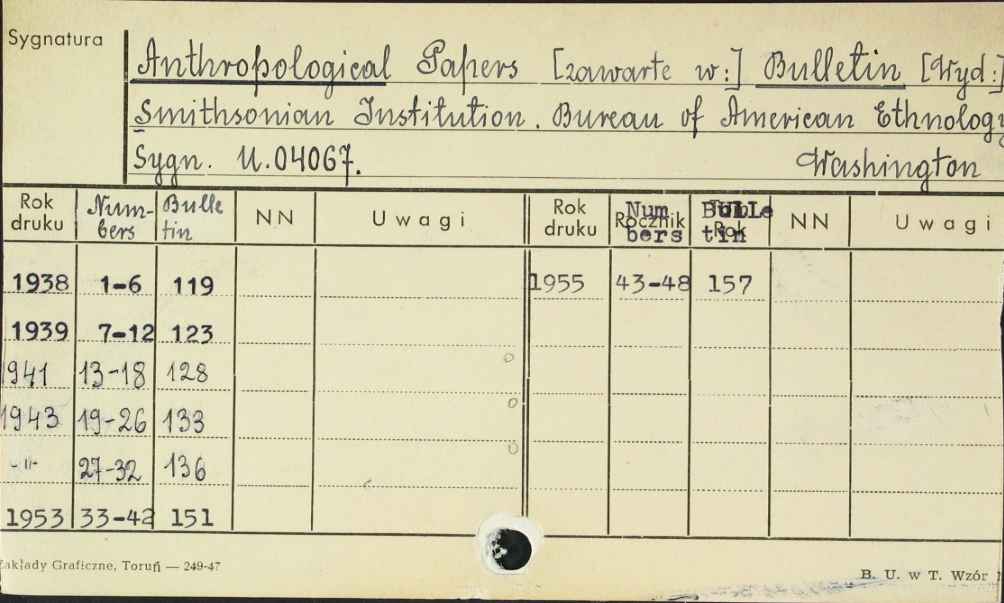 Sygnatura
Anthropological Papers [zawarte w:] Bulletin [Wyd:]
Smithsonian Institution. Bureau of American Ethnology
Sygn. U.04067. Washington
Rok druku Num-bers Bulletin NN Uwagi Rok druku Rocznik Numbers Tom Rok Bulletin NN Uwagi
1938 1-6 119 1955 43-48 157
1939 7-12 123
1941 13-18 128
1943 19-26 133
-"- 27-32 136
1953 33-42 151
Zakłady Graficzne, Toruń — 249-47 B. U. w T. Wzór